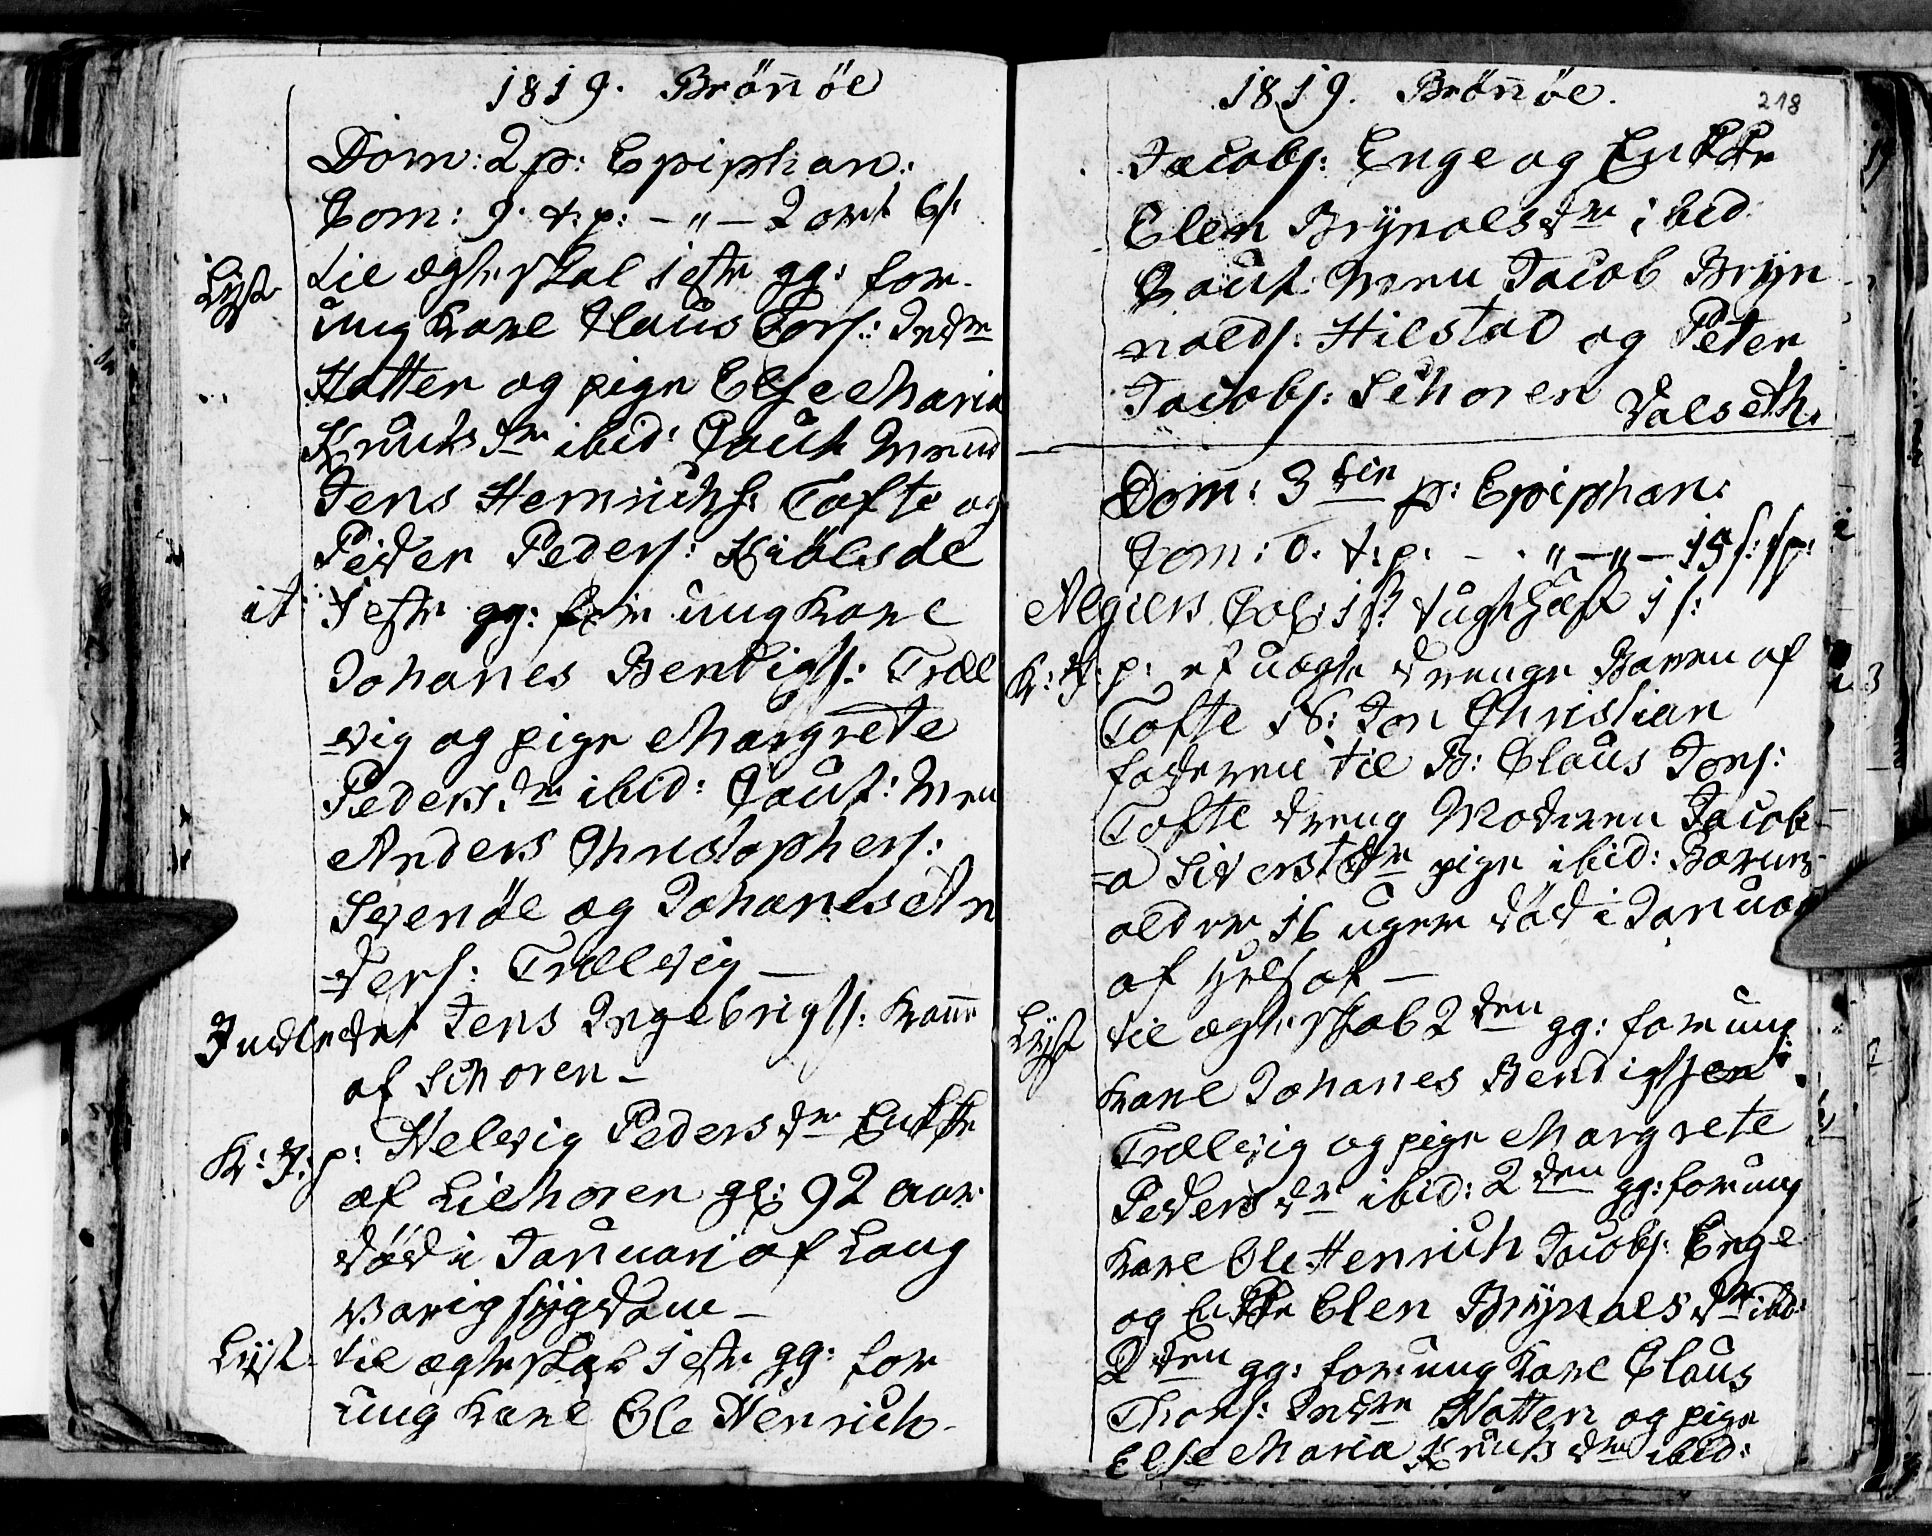 1819. Brönöe
Dom: 2 p: Epiphan:
Com: 9. t: p: — " — 2 ort 6 s:
Lyst til ægteskab 1ste gg: for
ung karl Claus Tors: Indre
Hatten og pige Else Maria
Knuts dr ibid: Caut: Mend
Jens Henrichs: Tofte og
Peder Peders: Kiölsöe
it: 1ste gg: for ung karl
Johanes Bendigts: Træl
=vig og pige Margrete
Peders dr ibid: Caut: Men
Anders Christophers:
Svenöe og Johanes An
=ders: Trælvig —
Indledet Jens Ingebrigts: kone
af Schoren —
K: J: p: Helvig Peders dr Enkke
af Liehoren gl: 92 aar
död i Januari af Lang
varig sygdom —
Lyst til ægteskab 1ste gg: for
ung karl Ole Henrich
1819. Brönöe.
218
Jacobs: Enge og Enkke
Elen Brynals dr ibid
Caut: Men Jacob Bryn
=nalds: Hilstad og Peter
Jacobs: Schoren Valseth.
Dom: 3 tia p: Epiphan:
Com: 0. t: p. — . " — " — 15 s: sp:
Algiers Col: 1 s: tugthuset 1 s:
K: J: p: et uægte drenge Barn af
Tofte N: Jon Christian
faderen til B: Claus Jons:
Tofte dreng Moderen Jacob
=a Siverst dr pige ibid: Barnets
alder 16 uger död i Januar
af
Lyst til ægteskab 2den gg: for ung
karl Johanes Bendigtsen
Trælvig og pige Margrete
Peders dr ibid: 2den gg: for ung
karl Ole Henrich Jacobs: Enge
og Enkke Elen Brynals dr ibid:
2den gg: for ung karl Claus
Thors: Indre Hatten og pige
Else Maria Knuts dr ibid: